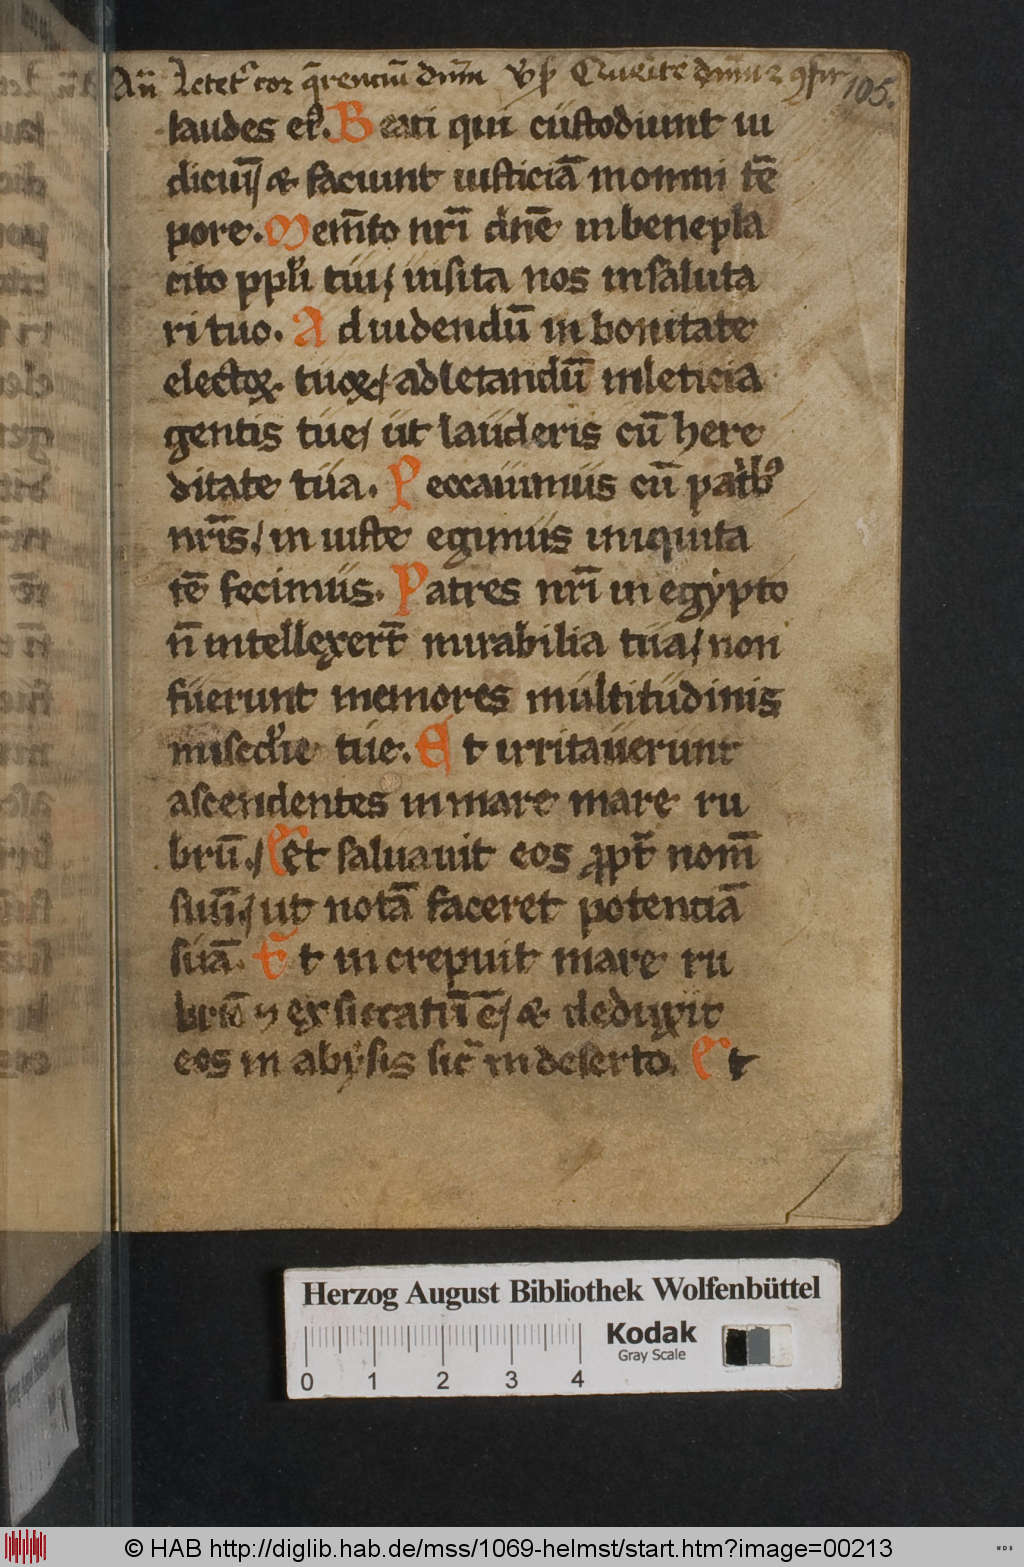 An̄ Letet᷑ cor q̄renciū dn̄m v̄s Querite dn̄m ⁊ ꝯfir 105.
laudes eı᷒. Beati qui custodiunt iu
diciū / & faciunt iusticiā in omni tē
pore. Mem̄to nr̄i dn̄e in benepla
cito ppl̓i tui / uisita nos in saluta
ri tuo. A d uidendū in bonitate
electoꝝ. tuoꝝ / ad letandū in leticia
gentis tue / ut lauderis cū here
ditate tua. P eccauimus cū patb᷒
nr̄is / in iuste egimus iniquita
tē fecimus. Patres nr̄i in egypto
n̄ intellexer̄t mirabilia tua / non
fuerunt memores multitudinis
misedie tue. E t irritauerunt
ascendentes in mare mare ru
brū. / Et saluauit eos ꝓpt̄ nom̄
suū / ut notā faceret potentiā
suā. E t in crepuit mare ru
brū ⁊ exsiccatū ē / & deduxit
eos in abysis sic̄ in deserto. Et
Herzog August Bibliothek Wolfenbüttel
Kodak
Gray Scale
0 1 2 3 4
© HAB http://diglib.hab.de/mss/1069-helmst/start.htm?image=00213
WDB